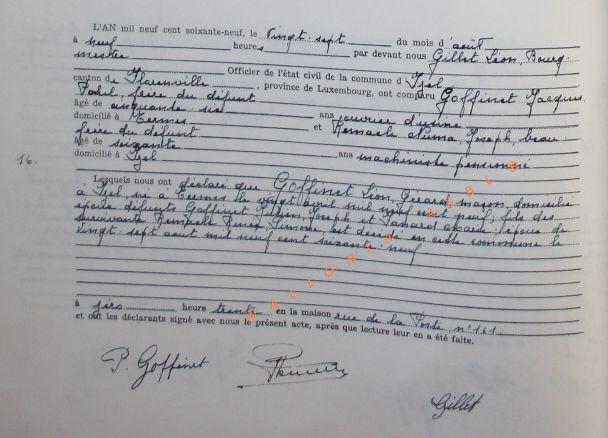 L'AN mil neuf cent soixante-neuf, le vingt-sept du mois d'août
à neuf heures par devant nous Gillet Léon, Bourg-
mestre Officier de l'état civil de la commune d'Izel
canton de Florenville, province de Luxembourg, ont comparu Goffinet Jacques,
frère du défunt
âgé de cinquante-six ans ouvrier d'usine
domicilié à Termes et Remacle Numa, Joseph, beau-
frère du défunt
âgé de soixante ans machiniste pensionné
domicilié à Izel
16.
Lesquels nous ont déclaré que Goffinet Léon, Gérard, maçon, domicilié
à Izel, né à Termes le vingt avril mil neuf cent neuf, fils des
époux défunts Goffinet Joseph et ; époux de
survivante Remacle Simone, est décédé en cette commune le
vingt-sept août mil neuf cent soixante-neuf
à heure trente en la maison rue de la n° 161
et ont les déclarants signé avec nous le présent acte, après que lecture leur en a été faite.
P. Goffinet
Gillet